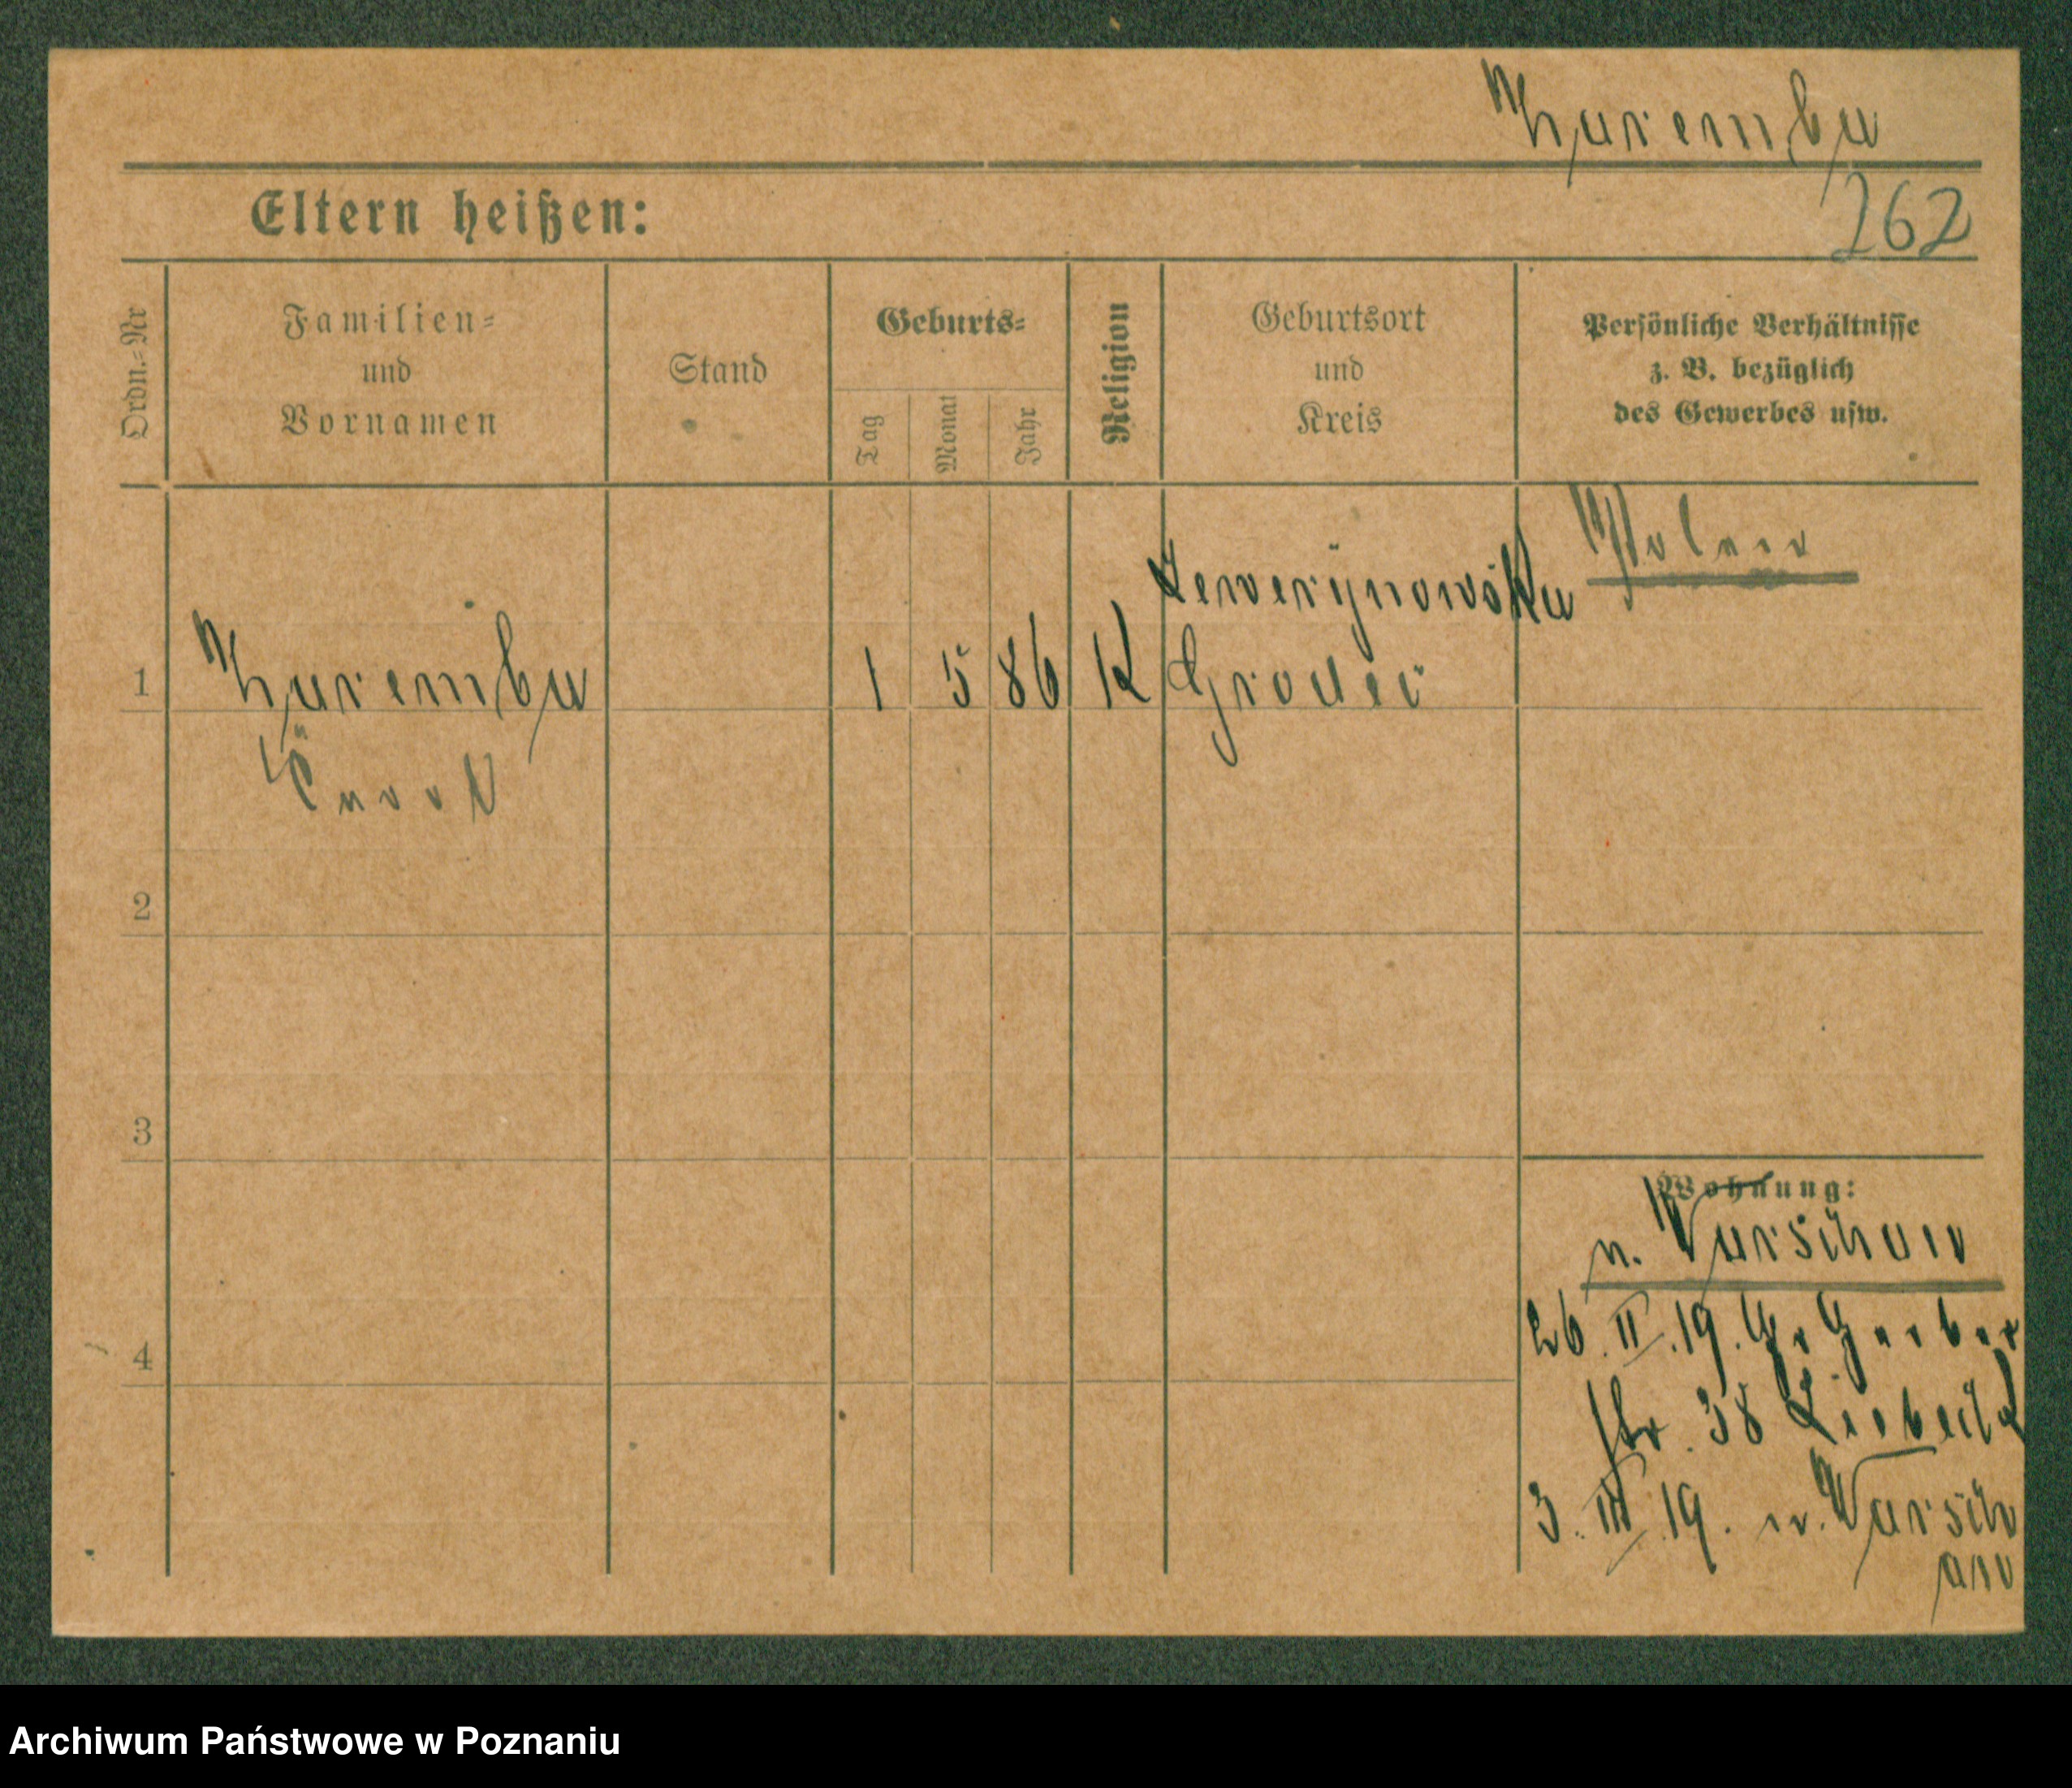 Zaremba
262
Eltern heißen:
Ordn.-Nr
Familien- und Vornamen
Stand
Geburts-
Tag
Monat
Jahr
Religion
Geburtsort und Kreis
Persönliche Verhältnisse z. B. bezüglich des Gewerbes usw.
Polen
1 Zaremba 1 5 86 K
2
3
4
Wohnung:
n. Warschau
26. II. 19. Gr. Gerber
str. 38
3. III. 19. n. Warsch
au
Archiwum Państwowe w Poznaniu